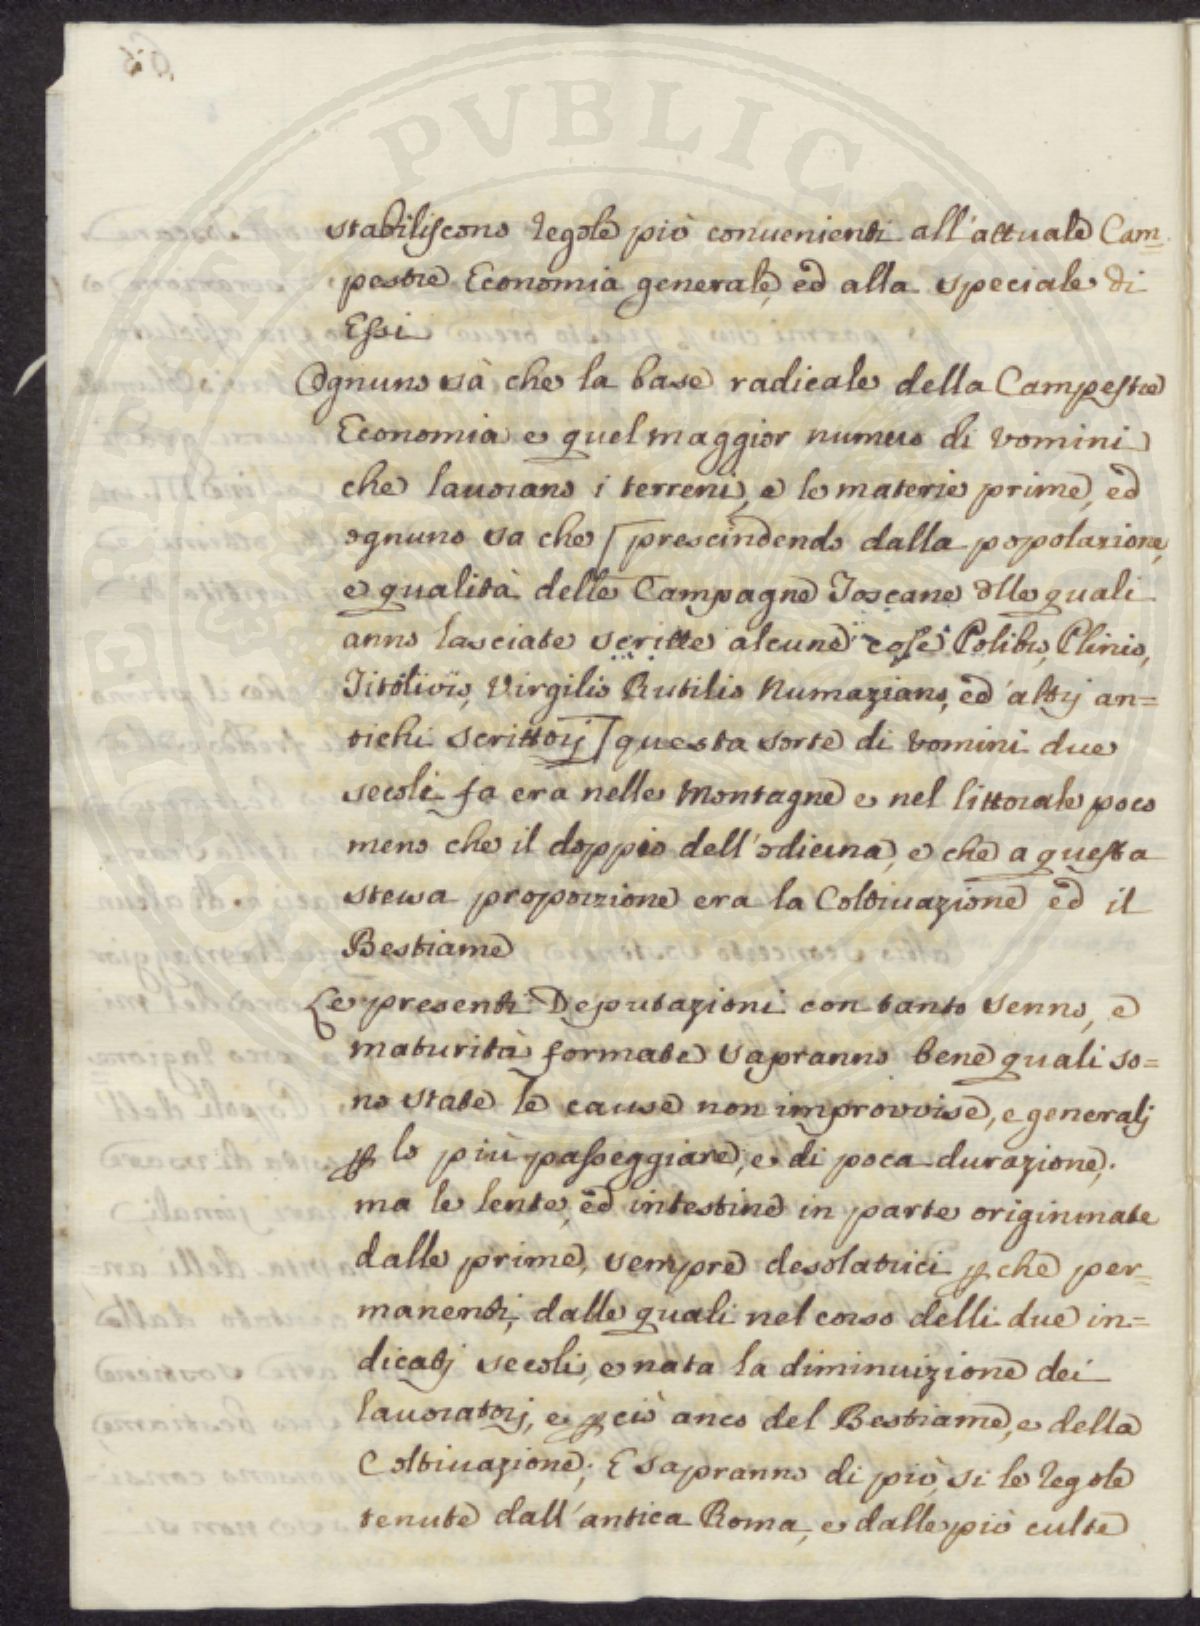 stabiliscono regole più convenienti all'attuale Cam=
pestre Economia generale, ed alla speciale di
Essi
Ognuno sà che la base radicale della Campestre
Economia e quel maggior numero di uomini
che lavorano i terreni, e le materie prime, ed
ognuno sa che [prescindendo dalla popolazione,
e qualità delle Campagne Toscane dlle quali
anno lasciate scritte alcune cose Polibio, Plinio,
Titolivio, Virgilio Rutilio Numaziano, ed altrj an=
tichi Scrittorj] questa sorte di uomini due
secoli fa era nelle Montagne e nel littorale poco
meno che il doppio dell'odierna, e che a questa
stessa proporzione era la Coltivazione ed il
Bestiame
Le presenti Deputazioni con tanto senno, e
maturità formate sapranno bene quali so=
no state le cause non improvvise, e generalj
p lo più passeggiare, e di poca durazione,
ma le lente, ed intestine in parte origininate
dalle prime, sempre desolatrici p che per=
manenti, dalle quali nel corso delli due in=
dicatj secoli, e nata la diminuizione dei
lavoratorj, e p ciò anco del Bestiame, e della
Coltivazione; E sapranno di più, si le regole
tenute dall'antica Roma, e dalle più culte
PVBLICAE